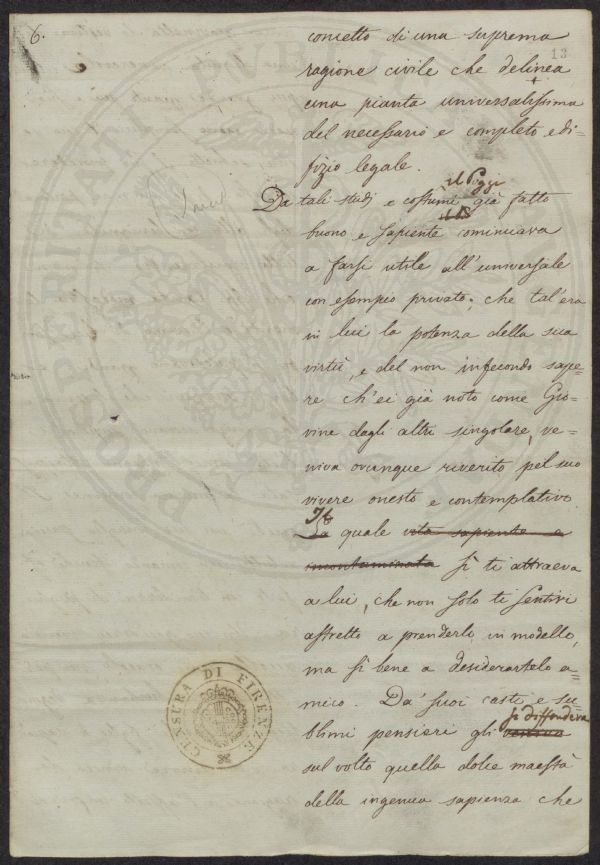 6.
13
concetto di una suprema
ragione civile che delinea
una pianta universalissima
del necessario e completo edi-
fizio legale.
Da tali studj e costumi il Poggi già fatto
buono e sapiente cominciava
a farsi utile all'universale
con esempio privato; che tal'era
in lui la potenza della sua
virtù, e del non infecondo sape-
re ch'ei già noto come Gio-
vine dagli altri singolare, ve-
niva ovunque riverito pel suo
vivere onesto e contemplativo.
Il quale vita sapiente e
incontaminata sì ti attraeva
a lui, che non solo ti sentivi
astretto a prenderlo in modello,
ma sì bene a desiderartelo a-
mico. Da' suoi casti e su-
blimi pensieri gli si diffondeva
sul volto quella dolce maestà
della ingenua sapienza che
CENSURA DI FIRENZE